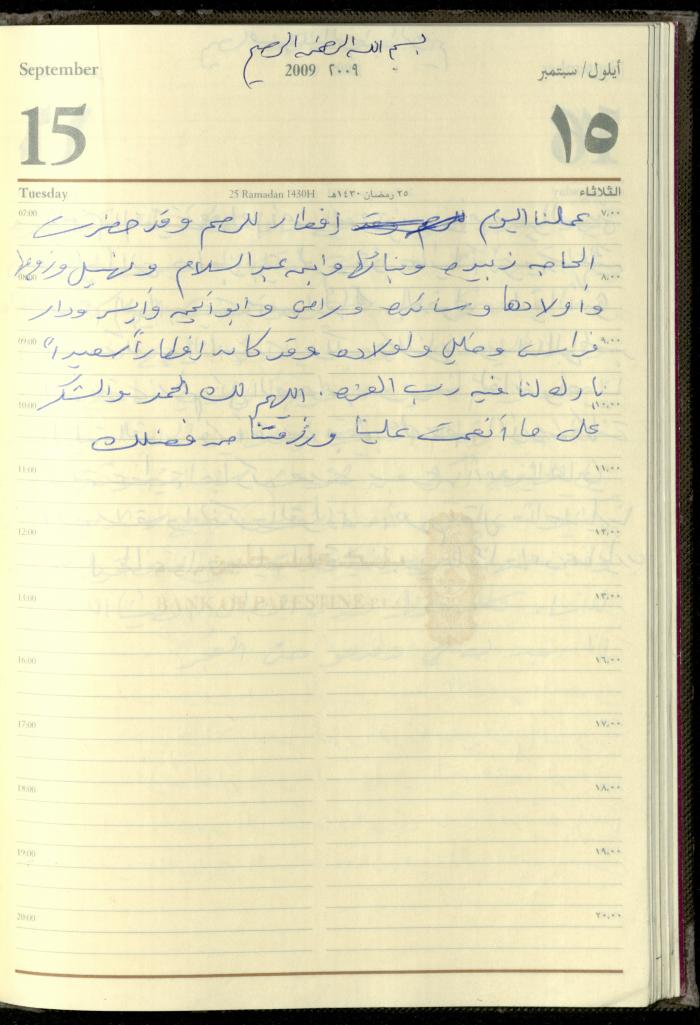 بسم الله الرحمن الرحيم
September 2009 ٢٠٠٩ أيلول/ سبتمبر
15 ١٥
Tuesday 25 Ramadan 1430H ٢٥ رمضان ١٤٣٠هـ الثلاثاء
07:00 ٧,٠٠
عملنا اليوم إفطار للرحم وقد حضرت
الحاجه زبيده وبناتها وابنه عبد السلام و وزوجها
08:00 ٨,٠٠
وأولادها وسائده ورامي وأبو وأيسر ودار
09:00 ٩,٠٠
فراس وخليل وأولاده وقد كان إفطاراً سعيداً
بارك لنا فيه رب العزه . اللهم لك الحمد والشكر
10:00 ١٠,٠٠
على ما أنعمت علينا ورزقتنا من فضلك
11:00 ١١,٠٠
12:00 ١٢,٠٠
13:00 ١٣,٠٠
BANK OF PALESTINE
16:00 ١٦,٠٠
17:00 ١٧,٠٠
18:00 ١٨,٠٠
19:00 ١٩,٠٠
20:00 ٢٠,٠٠